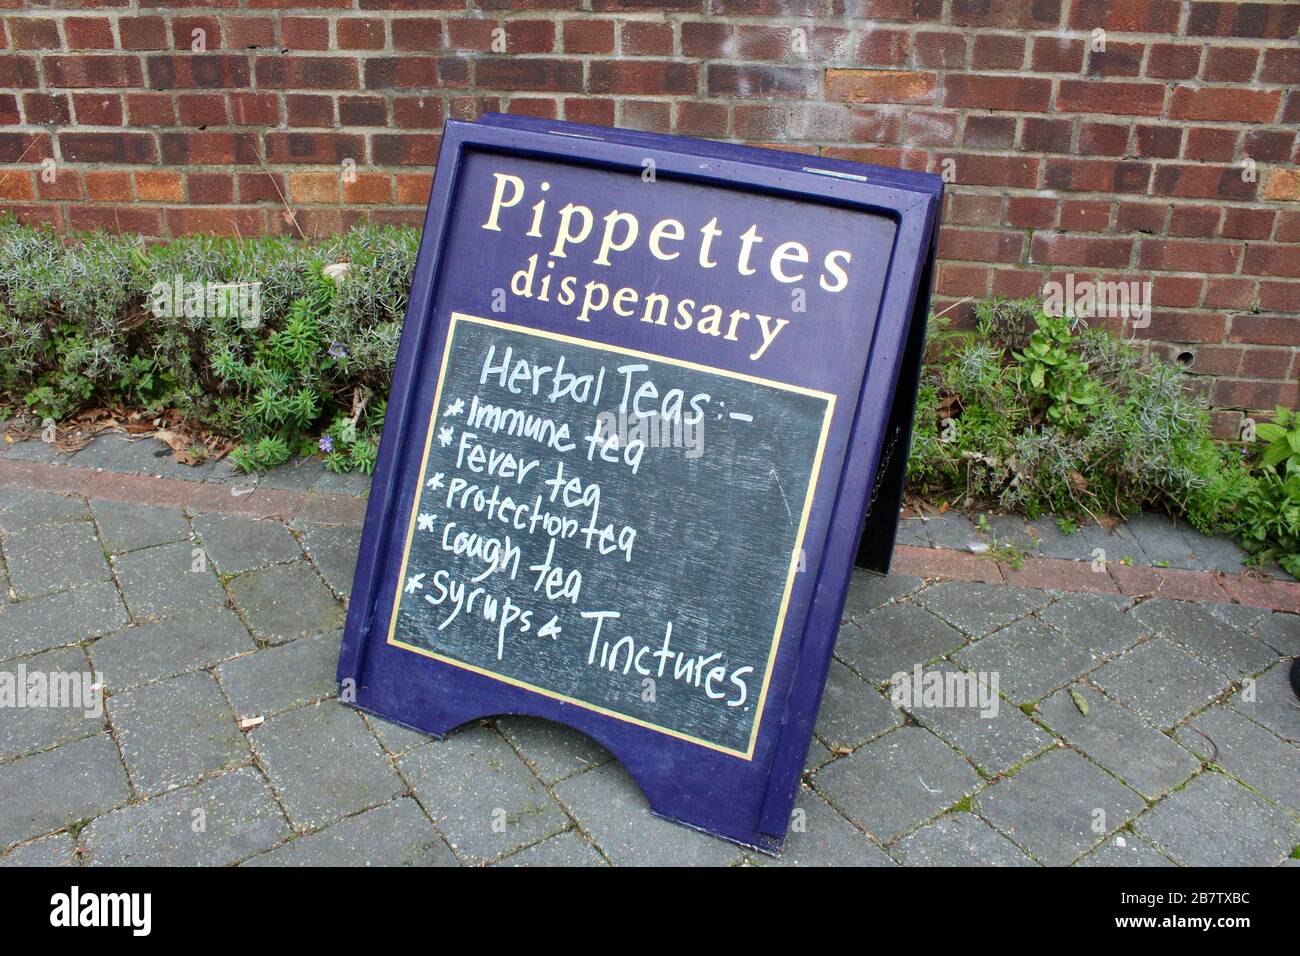 Pippettes
dispensary
Herbal Teas:-
* Immune tea
* Fever tea
* Protection tea
* Cough tea
* Syrups & Tinctures.
a
alamy
Image ID: 2B7TXBC
www.alamy.com